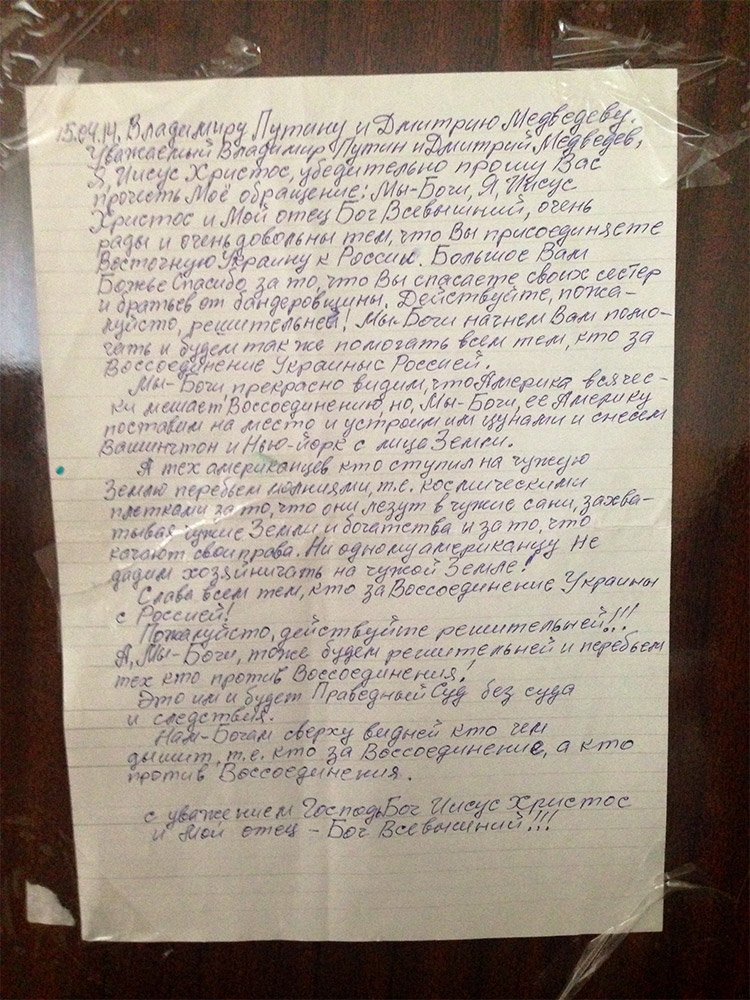 15.04.14. Владимиру Путину и Дмитрию Медведеву.
Уважаемый Владимир Путин и Дмитрий Медведев,
Я, Иисус Христос, убедительно прошу Вас
прочесть Моё обращение: Мы-Боги, Я, Иисус
Христос и Мой отец Бог Всевышний, очень
рады и очень довольны тем, что Вы присоединяете
Восточную Украину к России. Большое Вам
Божье Спасибо за то, что Вы спасаете своих сестер
и братьев от бандеровщины. Действуйте, пожа-
луйсто, решительней! Мы-Боги начнем Вам помо-
гать и будем так же помогать всем тем, кто за
Воссоединение Украины с Россией.
Мы-Боги прекрасно видим, что Америка всячес-
ки мешает Воссоединению, но, Мы-Боги, ее Америку
поставим на место и устроим им цунами и снесем
Вашингтон и Нью-Йорк с лица Земли.
А тех американцев кто ступил на чужую
Землю перебьем молниями, т.е. космическими
плетками за то, что они лезут в чужие сани, захва-
тывая чужие Земли и богатства и за то, что
качают свои права. Ни одному американцу не
дадим хозяйничать на чужой Земле!
Слава всем тем, кто за Воссоединение Украины
с Россией!
Пожалуйсто, действуйте решительней!!!
А, Мы-Боги, тоже будем решительней и перебьем
тех кто против Воссоединения!
Это им и будет Праведный Суд без суда
и следствия.
Нам-Богам сверху видней кто чем
дышит, т.е. кто за Воссоединение, а кто
против Воссоединения.
с уважением Господь Бог Иисус Христос
и Мой отец - Бог Всевышний!!!